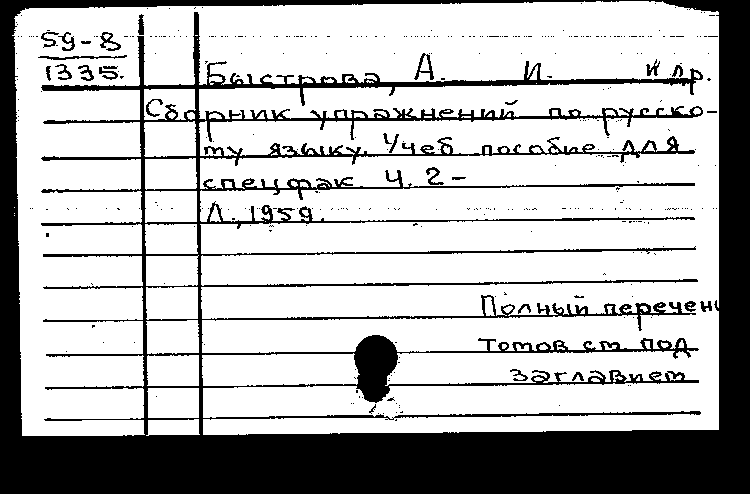 59-8
1335.
Быстрова, А. И. и др.
Сборник упражнений по русско-
му языку. Учеб пособие для
спецфак. Ч. 2-
Л., 1959.
Полный перечень
томов см. под
заглавием